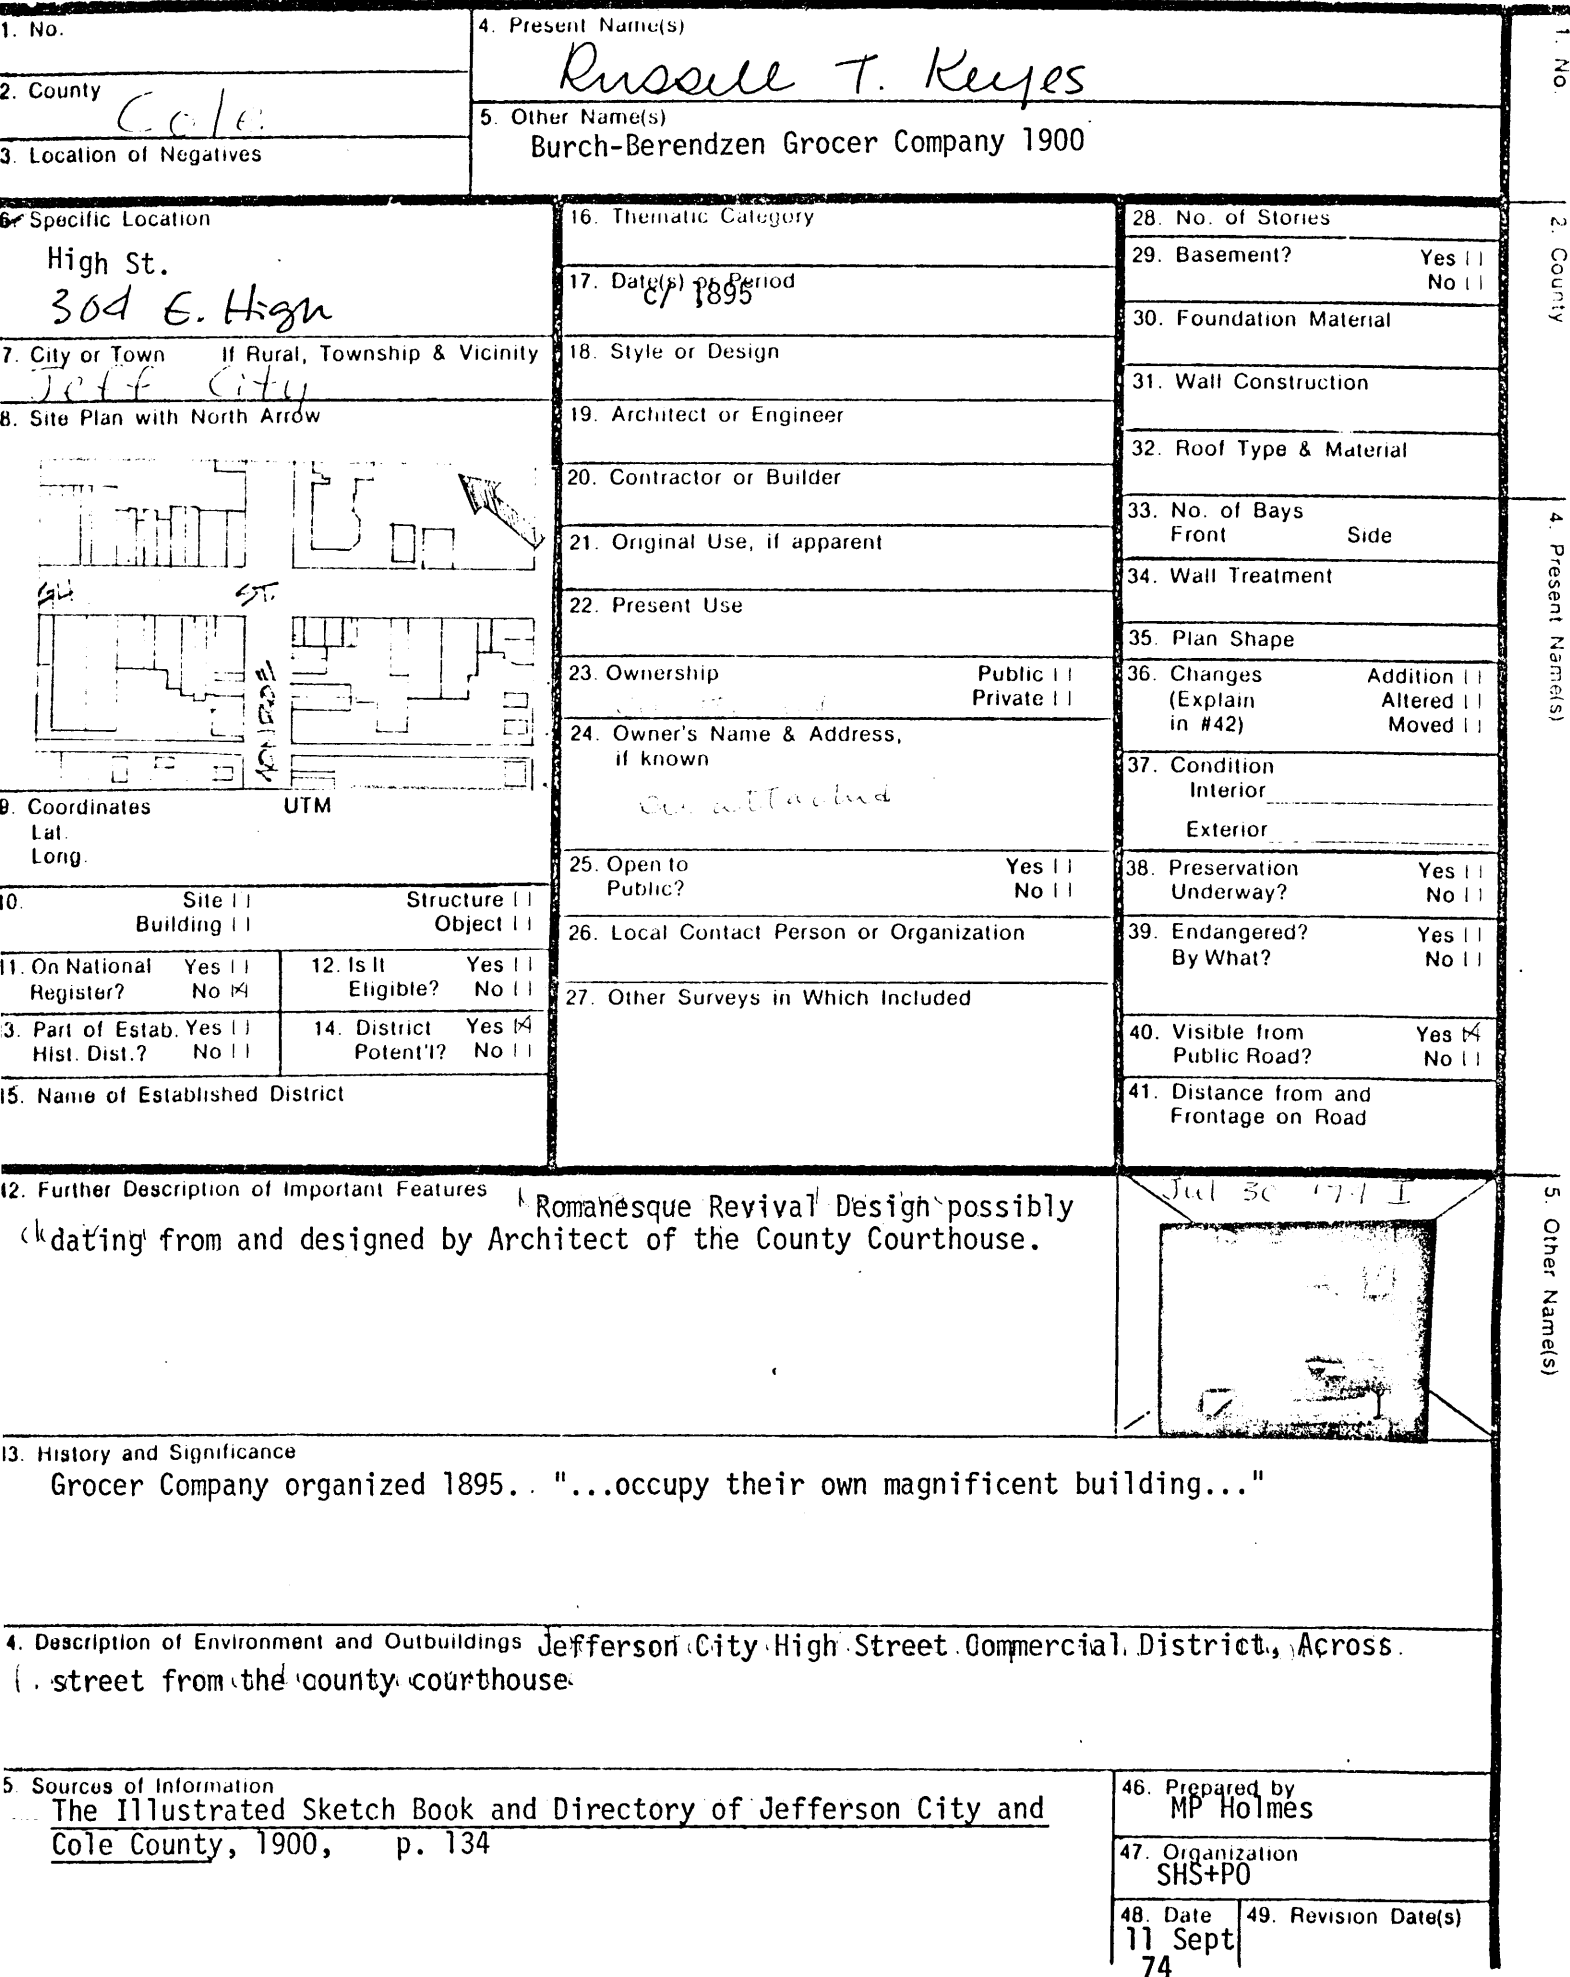 1. No.
4. Present Name(s)
Russell T. Keyes
2. County
Cole
5. Other Name(s)
Burch-Berendzen Grocer Company 1900
3. Location of Negatives
6. Specific Location
High St.
304 E. High
7. City or Town If Rural, Township & Vicinity
Jeff City
8. Site Plan with North Arrow
ST.
MONROE
9. Coordinates UTM
Lat.
Long.
10. Site | | Structure | |
Building | | Object | |
11. On National Register? Yes | | No |X|
12. Is It Eligible? Yes | | No | |
13. Part of Estab. Hist. Dist.? Yes | | No | |
14. District Potent'l? Yes |X| No | |
15. Name of Established District
16. Thematic Category
17. Date(s) or Period
c/ 1895
18. Style or Design
19. Architect or Engineer
20. Contractor or Builder
21. Original Use, if apparent
22. Present Use
23. Ownership Public | |
Private | |
24. Owner's Name & Address,
if known
attached
25. Open to Yes | |
Public? No | |
26. Local Contact Person or Organization
27. Other Surveys in Which Included
28. No. of Stories
29. Basement? Yes | |
No | |
30. Foundation Material
31. Wall Construction
32. Roof Type & Material
33. No. of Bays
Front Side
34. Wall Treatment
35. Plan Shape
36. Changes Addition | |
(Explain Altered | |
in #42) Moved | |
37. Condition
Interior
Exterior
38. Preservation Yes | |
Underway? No | |
39. Endangered? Yes | |
By What? No | |
40. Visible from Yes |X|
Public Road? No | |
41. Distance from and
Frontage on Road
42. Further Description of Important Features
Romanesque Revival Design possibly
dating from and designed by Architect of the County Courthouse.
Jul 30
43. History and Significance
Grocer Company organized 1895. "...occupy their own magnificent building..."
4. Description of Environment and Outbuildings Jefferson City High Street Commercial District, Across
street from the county courthouse
5. Sources of Information
The Illustrated Sketch Book and Directory of Jefferson City and
Cole County, 1900, p. 134
46. Prepared by
MP Holmes
47. Organization
SHS+PO
48. Date
11 Sept
74
49. Revision Date(s)
1. No.
2. County
4. Present Name(s)
5. Other Name(s)